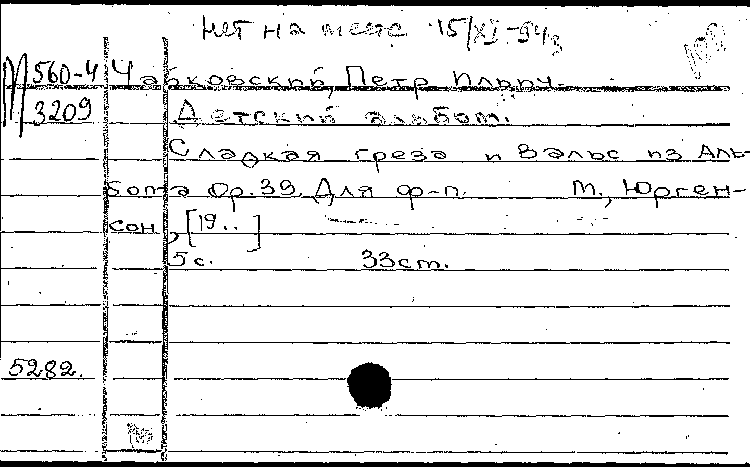 Нет на месте 15/XI-54
М 560-4 Чайковский, Петр Ильич.
3209 Детский альбом.
Сладкая греза и Вальс из Аль-
бома Op. 39. Для ф-п. М., Юрген-
сон, [19..]
5 с. 33 см.
5282.